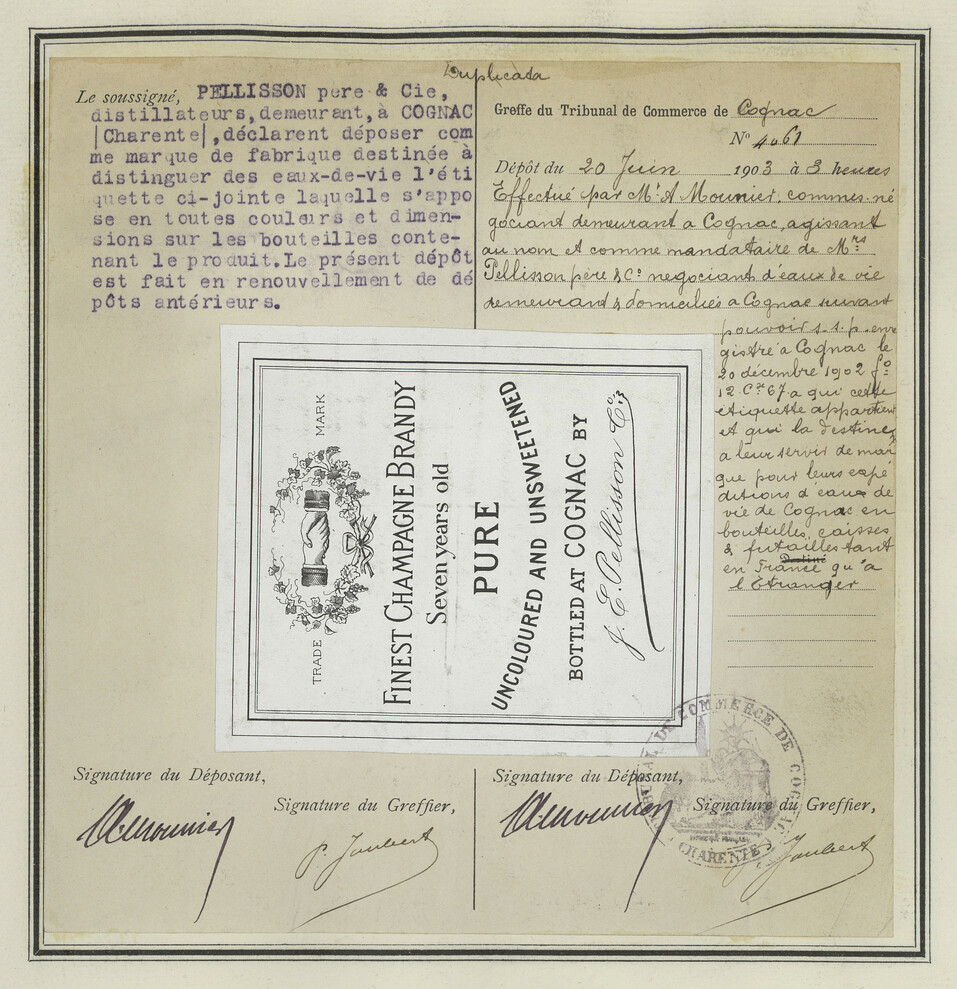 Duplicata
Le soussigné, PELLISSON pere & Cie,
distillateurs,demeurant,à COGNAC
|Charente|,déclarent déposer com
me marque de fabrique destinée à
distinguer des eaux-de-vie l'éti
quette ci-jointe laquelle s'appo
se en toutes couleurs et dimen-
sions sur les bouteilles conte-
nant le produit.Le présent dépôt
est fait en renouvellement de dé
pôts antérieurs.
Greffe du Tribunal de Commerce de Cognac
N° 4061
Dépôt du 20 Juin 1903 à 3 heures
Effectué par Mr A Mounier, commis-né
gociant demeurant a Cognac, agissant
au nom et comme mandataire de Mrs
Pellisson père & Co negociant d'eaux de vie
demeurant & domiciliés a Cognac suivant
pouvoir s.s.p. enre
gistré a Cognac le
20 décembre 1902 fo
12 Ce 67 a qui cette
étiquette appartient
et qui la destine
a leur servir de mar
que pour leurs expé
ditions d'eaux de
vie de Cognac en
bouteilles, caisses
& futailles tant
en France qu'a
l'Etranger
TRADE MARK
FINEST CHAMPAGNE BRANDY
Seven years old
PURE
UNCOLOURED AND UNSWEETENED
BOTTLED AT COGNAC BY
J. E. Pellisson & Co
Signature du Déposant,
Signature du Greffier,
A. Mounier
P. Joubert
Signature du Déposant,
Signature du Greffier,
A. Mounier
P. Joubert
TRIBUNAL DE COMMERCE DE COGNAC
CHARENTE